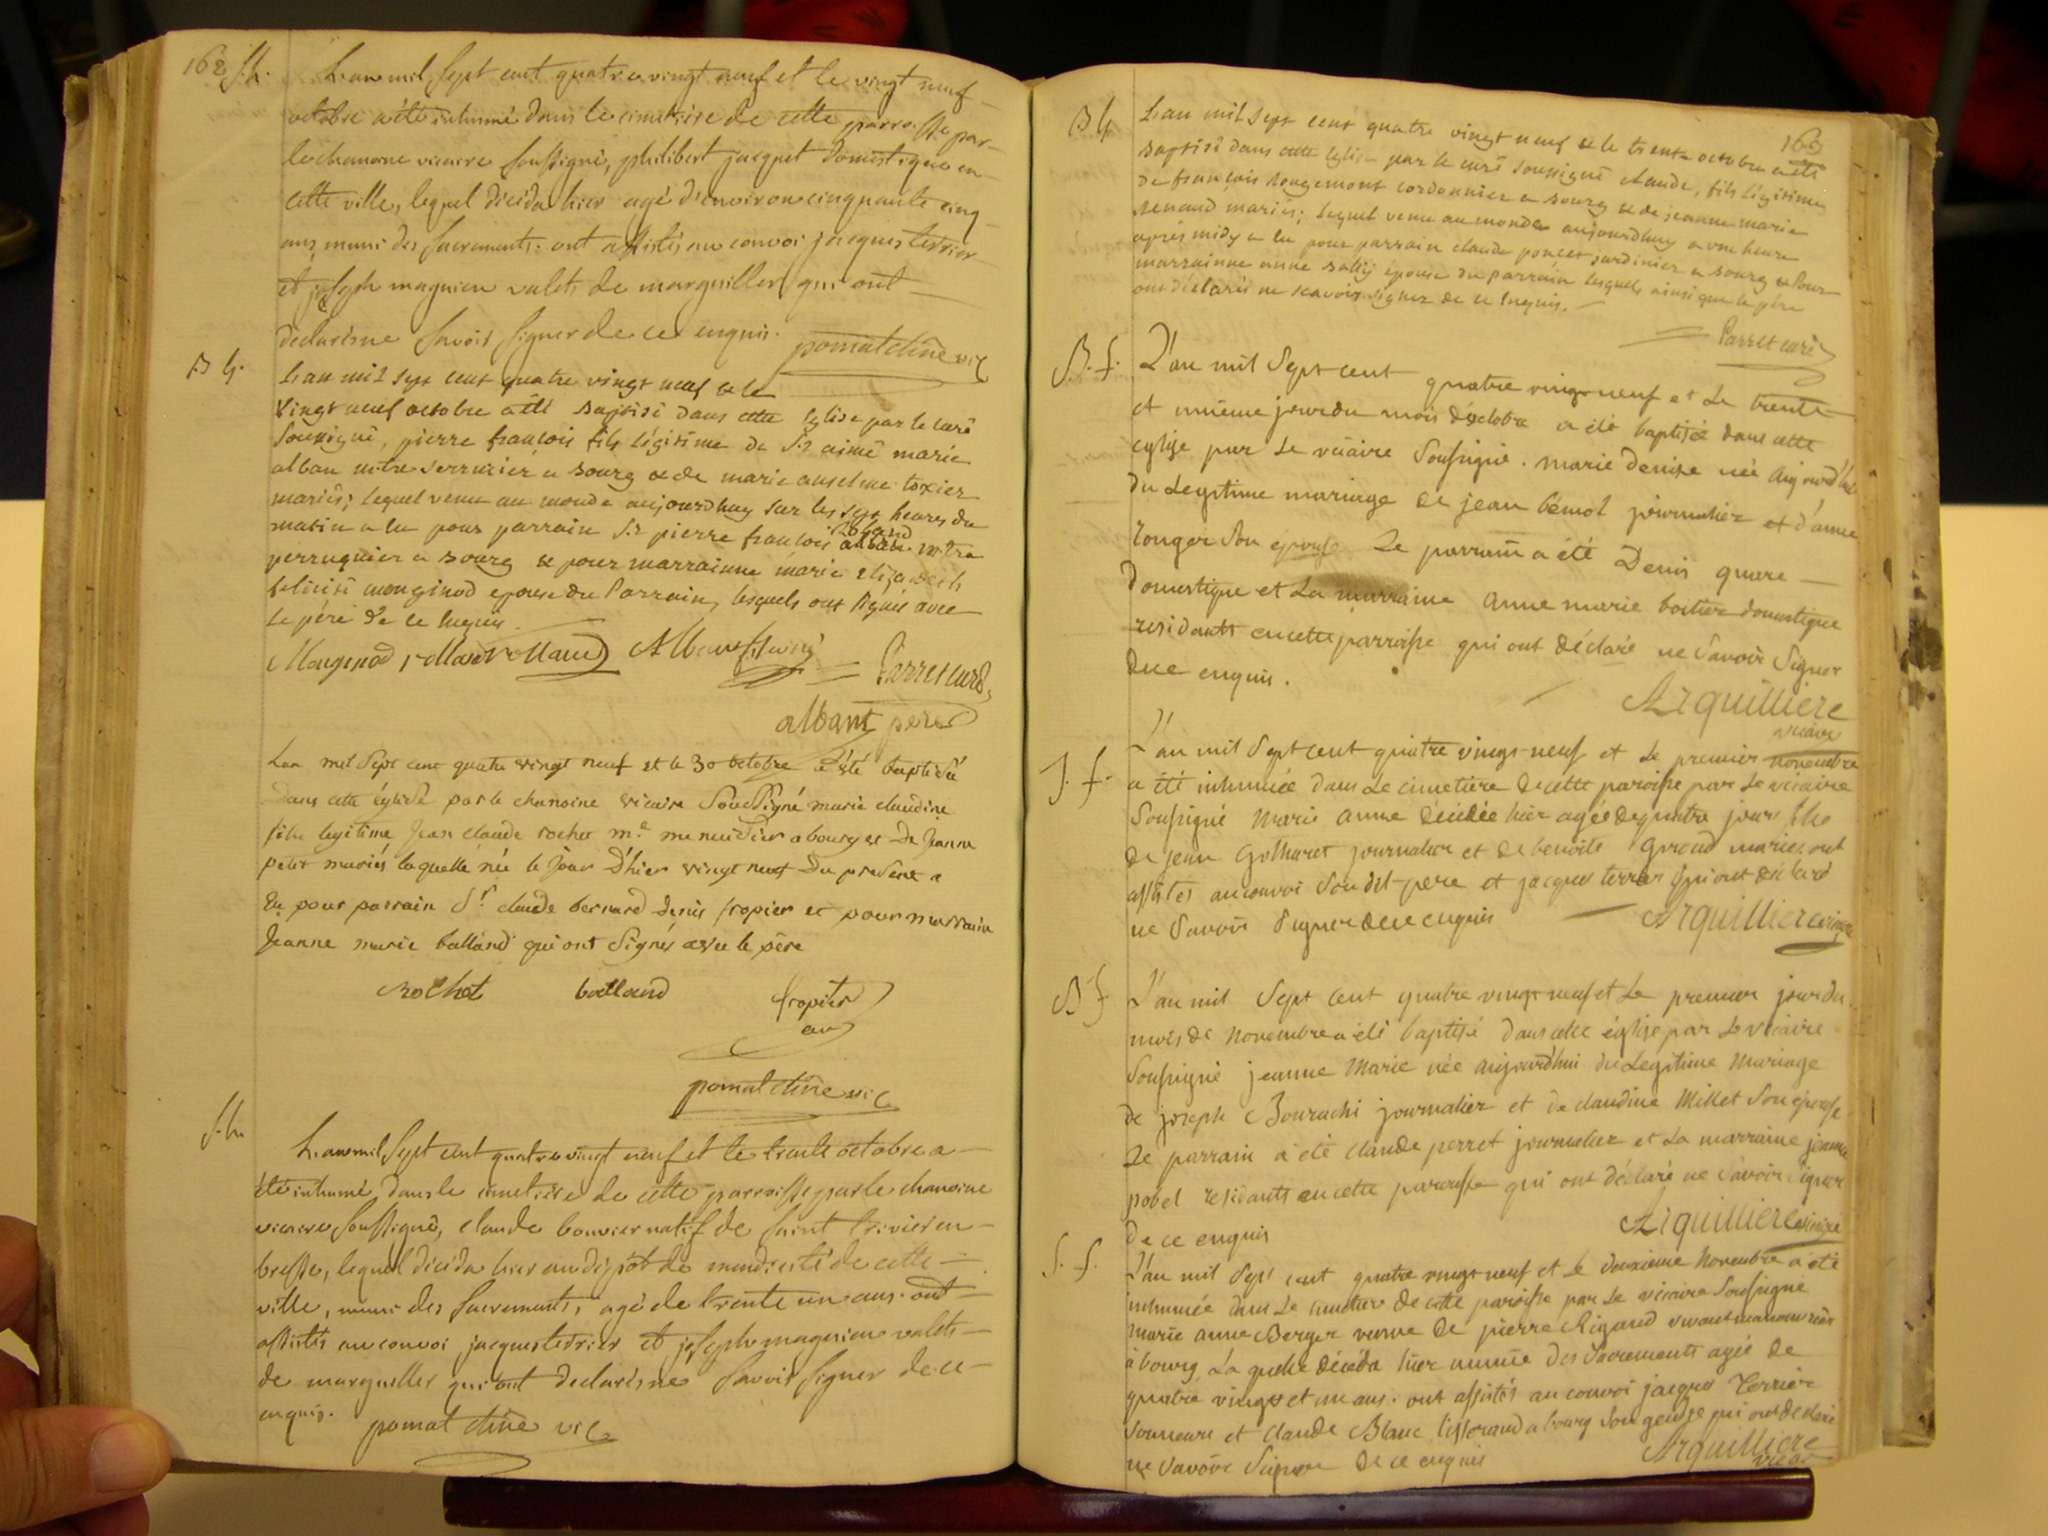 162 S.h. L'an mil sept cent quatre vingt neuf et le vingt neuf
octobre a été inhumé dans le cimetiere de cette parroisse par
le chanoine vicaire soussigné, philibert jacquet domestique en
cette ville, lequel décéda hier agé d'environ cinquante cinq
ans, muni des sacrements: ont assistés au convoi jacques terrier
et joseph magnien valets de marguillers qui ont
declarés ne savoir signer de ce enquis. pomat chne vic
B h. L'an mil sept cent quatre vingt neuf & le
vingt neuf octobre a été baptisé dans cette eglise par le curé
soussigné, pierre francois fils légitime de Sr aimé marie
alban mtre serrurier a bourg & de marie anselme
mariés; lequel venu au monde aujourdhuy sur les sept heures du
matin a eu pour parrain Sr pierre francois mtre
perruquier a bourg & pour marrainne marie elizabeth
félicité monginod epouse du Parrain, lesquels ont signés avec
le père de ce enquis.
Monginod rolland Parret curé
albant pere
Lan mil sept cent quatre vingt neuf et le 30 octobre a été baptisée
dans cette église par le chanoine vicaire soussigné marie claudine
fille legitime Jean claude rochet me menuisier a bourg et de Jeanne
petit mariés laquelle née le jour d'hier vingt neuf du présent a
eu pour parrain Sr claude bernard denis fropier et pour marraine
Jeanne marie balland qui ont signés avec le père
Rochet balland fropier
pomat chne vic
S.h. L'an mil sept cent quatre vingt neuf et le trente octobre a
été inhumé dans le cimetiere de cette parroisse par le chanoine
vicaire soussigné, claude bouvier natif de saint trivier en
bresse, lequel décéda hier au dépôt de mendicité de cette
ville, muni des sacrements, agé de trente un ans. ont
assistés au convoi jacques terrier et joseph magnien valets
de marguillers qui ont declarés ne savoir signer de ce
enquis. pomat chne vic
163
B h L'an mil sept cent quatre vingt neuf & le trente octobre a été
baptisé dans cette eglise par le curé soussigné claude, fils légitime
de françois rougemont cordonnier a bourg & de jeanne marie
renaud mariés; lequel venu au monde aujourdhuy a une heure
apres midy a eu pour parrain claude poncet jardinier a bourg & pour
marrainne anne épouse du parrain lesquels ainsi que le père
ont déclarés ne scavoir signer de ce enquis.
Parret curé
B. f. L'an mil sept cent quatre vingt neuf et le trente
et unième jour du mois d'octobre a été baptisée dans cette
eglise par le vicaire soussigné. marie denise née aujourd'hui
du legitime mariage de jean bémol journalier et d'anne
longer son epouse Le parrain a été Denis quare
domestique et la marraine anne marie boitier domestique
residants en cette parroisse qui ont déclaré ne savoir signer
de ce enquis.
Arquilliere
vicaire
S. f. L'an mil sept cent quatre vingt neuf et le premier novembre
a été inhumée dans le cimetiere de cette paroisse par le vicaire
soussigné Marie anne décédée hier agée de quatre jours fille
de jean journalier et de benoite giroud mariés. ont
assistés au convoi son dit pere et jacques terrier qui ont déclaré
ne savoir signer de ce enquis Arquilliere vicaire
B f. L'an mil sept cent quatre vingt neuf et le premier jour du
mois de novembre a été baptisé dans cette église par le vicaire
soussigné jeanne Marie née aujourd'hui du legitime mariage
de joseph Bourachi journalier et de claudine Millet son epouse
Le parrain a été claude perret journalier et la marraine jeanne
pobel residants en cette paroisse qui ont déclaré ne savoir signer
de ce enquis Arquilliere vicaire
S. f. L'an mil sept cent quatre vingt neuf et le deuxieme novembre a été
inhumée dans le cimetiere de cette paroisse par le vicaire soussigné
marie anne Berger veuve de pierre Rigaud vivant manouvrier
à bourg, La quelle décéda hier munie des sacrements agée de
quatre vingt et un ans. ont assistés au convoi jacques Terrier
sonneur et claude Blanc tisserand a bourg son gendre qui ont declaré
ne savoir signer de ce enquis Arquilliere
vicaire